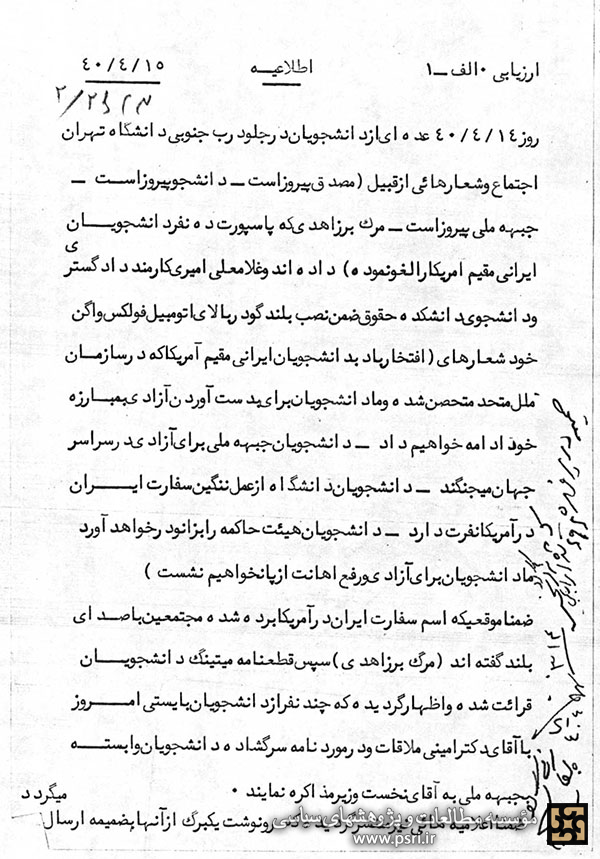 ارزیابی ۰ الف ــ ۱
اطلاعیه
۴۰/۴/۱۵
روز ۴۰/۴/۱۴ عده ای از دانشجویان در جلو درب جنوبی دانشگاه تهران
اجتماع و شعارهائی از قبیل (مصدق پیروز است ــ دانشجو پیروز است ــ
جبهه ملی پیروز است ــ مرگ بر زاهدی که پاسپورت ده نفر دانشجویان
ایرانی مقیم امریکا را لغو نموده) داده اند و غلامعلی امیری کارمند دادگستری
و دانشجوی دانشکده حقوق ضمن نصب بلندگو در بالای اتومبیل فولکس واگن
خود شعارهای (افتخار باد بدانشجویان ایرانی مقیم آمریکا که در سازمان
ملل متحد متحصن شده و ما دانشجویان برای بدست آوردن آزادی بمبارزه
خود ادامه خواهیم داد ــ دانشجویان جبهه ملی برای آزادی در سراسر
جهان میجنگند ــ دانشجویان دانشگاه از عمل ننگین سفارت ایران
در آمریکا نفرت دارد ــ دانشجویان هیئت حاکمه را بزانو در خواهد آورد
ما دانشجویان برای آزادی و رفع اهانت از پا نخواهیم نشست )
ضمنا موقعیکه اسم سفارت ایران در آمریکا برده شده مجتمعین با صدای
بلند گفته اند (مرگ بر زاهدی) سپس قطعنامه میتینگ دانشجویان
قرائت شده و اظهار گردیده که چند نفر از دانشجویان بایستی امروز
با آقای دکتر امینی ملاقات و در مورد نامه سرگشاده دانشجویان وابسته
بجبهه ملی به آقای نخست وزیر مذاکره نمایند ۰
ضمنا اعلامیه هائی نیز منتشر گردیده که رونوشت یکبرگ از آنها بضمیمه ارسال میگردد
مؤسسه مطالعات و پژوهشهای سیاسی
www.psri.ir